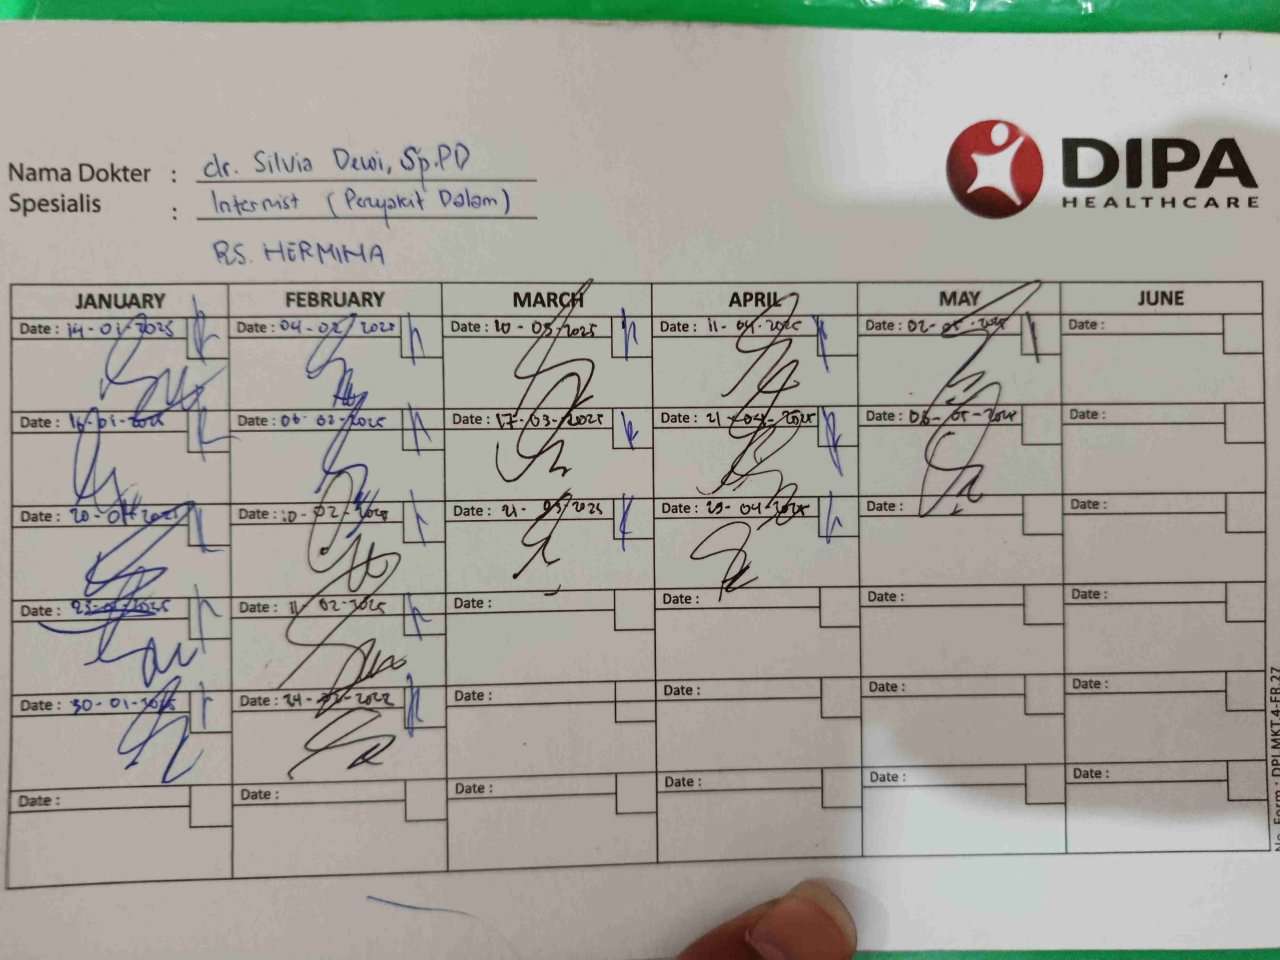 DIPA
HEALTHCARE
Nama Dokter : dr. Silvia Dewi, Sp.PD
Spesialis : Internist (Penyakit Dalam)
RS. HERMINA
JANUARY FEBRUARY MARCH APRIL MAY JUNE
Date : 14-01-2025 Date : 04-02-2025 Date : 10-03-2025 Date : 11-04-2025 Date : 02-05-2025 Date :
Date : 16-01-2025 Date : 06-02-2025 Date : 17-03-2025 Date : 21-04-2025 Date : 06-05-2025 Date :
Date : 20-01-2025 Date : 10-02-2025 Date : 21-03-2025 Date : 29-04-2025 Date : Date :
Date : 23-01-2025 Date : 11-02-2025 Date : Date : Date : Date :
Date : 30-01-2025 Date : 24-02-2022 Date : Date : Date : Date :
Date : Date : Date : Date : Date : Date :
No. Form : DPI.MKT.4-FR.27